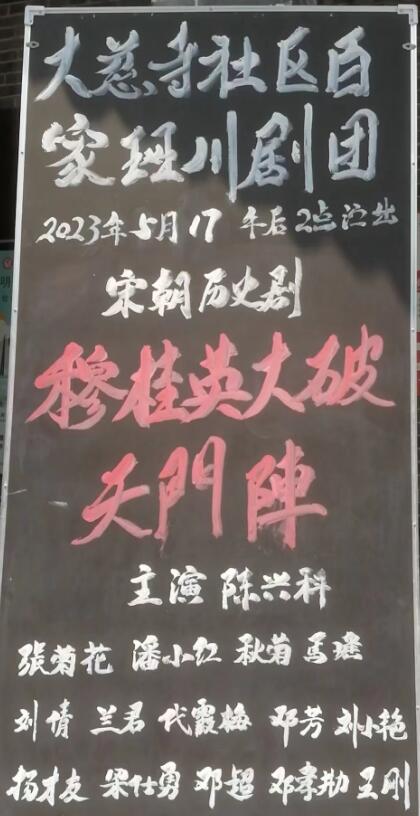 大慈寺社区百
家班川剧团
2023年5月17 午后2点演出
宋朝历史剧
穆桂英大破
天門陣
主演 陈兴科
張菊花 潘小红 秋菊 馬瑶
刘倩 兰君 代霞梅 邓芳 刘小艳
杨才友 梁仕勇 邓超 邓孝勋 王刚